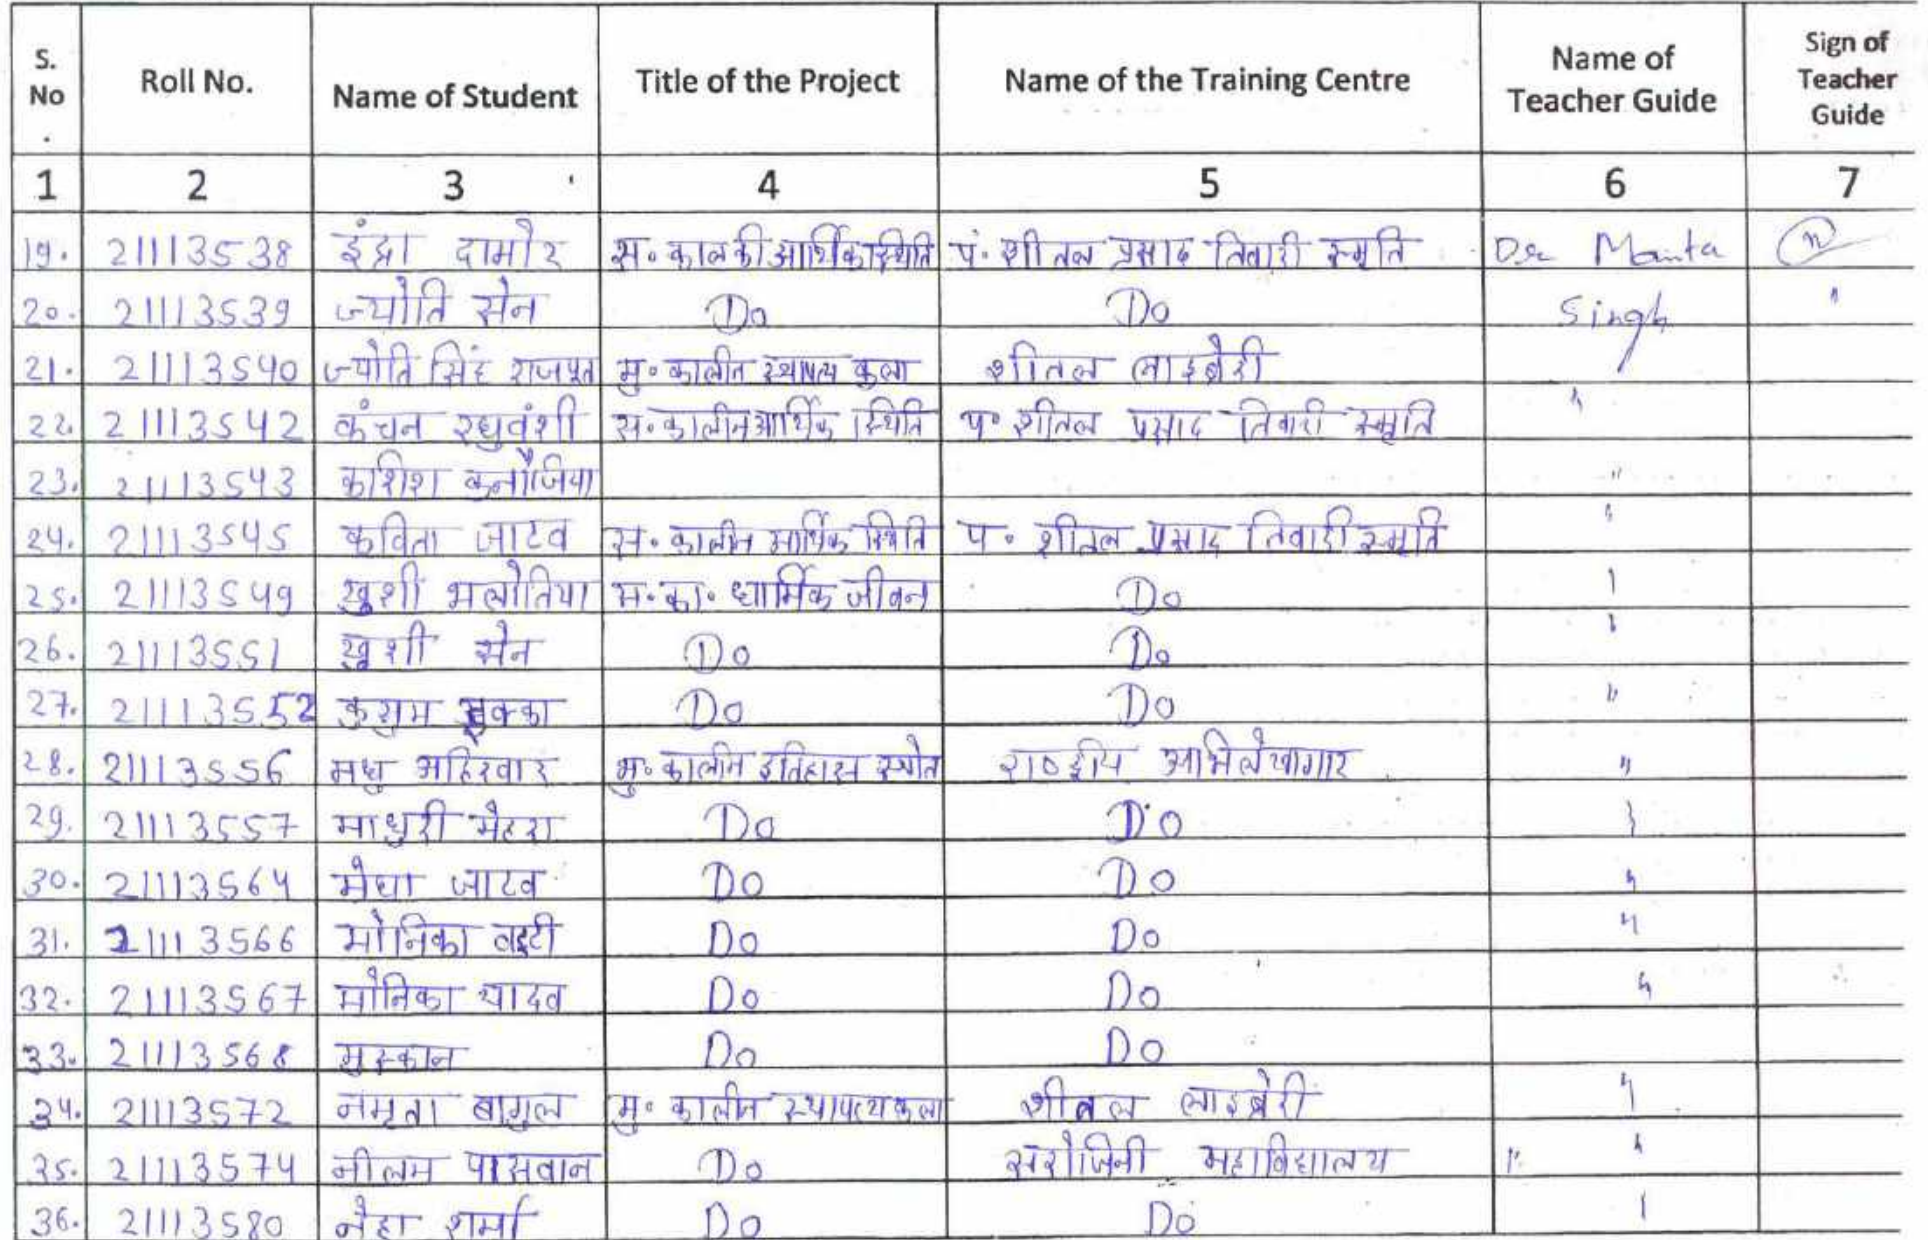 S. No. Roll No. Name of Student Title of the Project Name of the Training Centre Name of Teacher Guide Sign of Teacher Guide
1 2 3 4 5 6 7
19. 21113538 इंद्रा दामोर स॰ काल की आर्थिक स्थिति पं. शीतल प्रसाद तिवारी स्मृति
20. 21113539 ज्योति सेन Do Do Singh "
21. 21113540 ज्योति सिंह राजपूत मु॰ कालीन स्थापत्य कला शीतल लाइब्रेरी
22. 21113542 कंचन रघुवंशी स॰ कालीन आर्थिक स्थिति प॰ शीतल प्रसाद तिवारी स्मृति "
23. 21113543 काशिश कनौजिया "
24. 21113545 कविता जाटव स॰ कालीन आर्थिक स्थिति प॰ शीतल प्रसाद तिवारी स्मृति "
25. 21113549 खुशी भलोतिया स॰ का॰ धार्मिक जीवन Do "
26. 21113551 खुशी सेन Do Do "
27. 21113552 कुसुम Do Do "
28. 21113556 मधु अहिरवार मु॰ कालीन इतिहास स्त्रोत राष्ट्रीय अभिलेखागार "
29. 21113557 माधुरी मेहरा Do Do "
30. 21113564 मेघा जाटव Do Do "
31. 21113566 मोनिका Do Do "
32. 21113567 मोनिका यादव Do Do "
33. 21113568 मुस्कान Do Do
34. 21113572 नमृता बागुल मु॰ कालीन स्थापत्य कला शीतल लाइब्रेरी "
35. 21113574 नीलम पासवान Do सरोजिनी महाविद्यालय " "
36. 21113580 नेहा शर्मा Do Do "